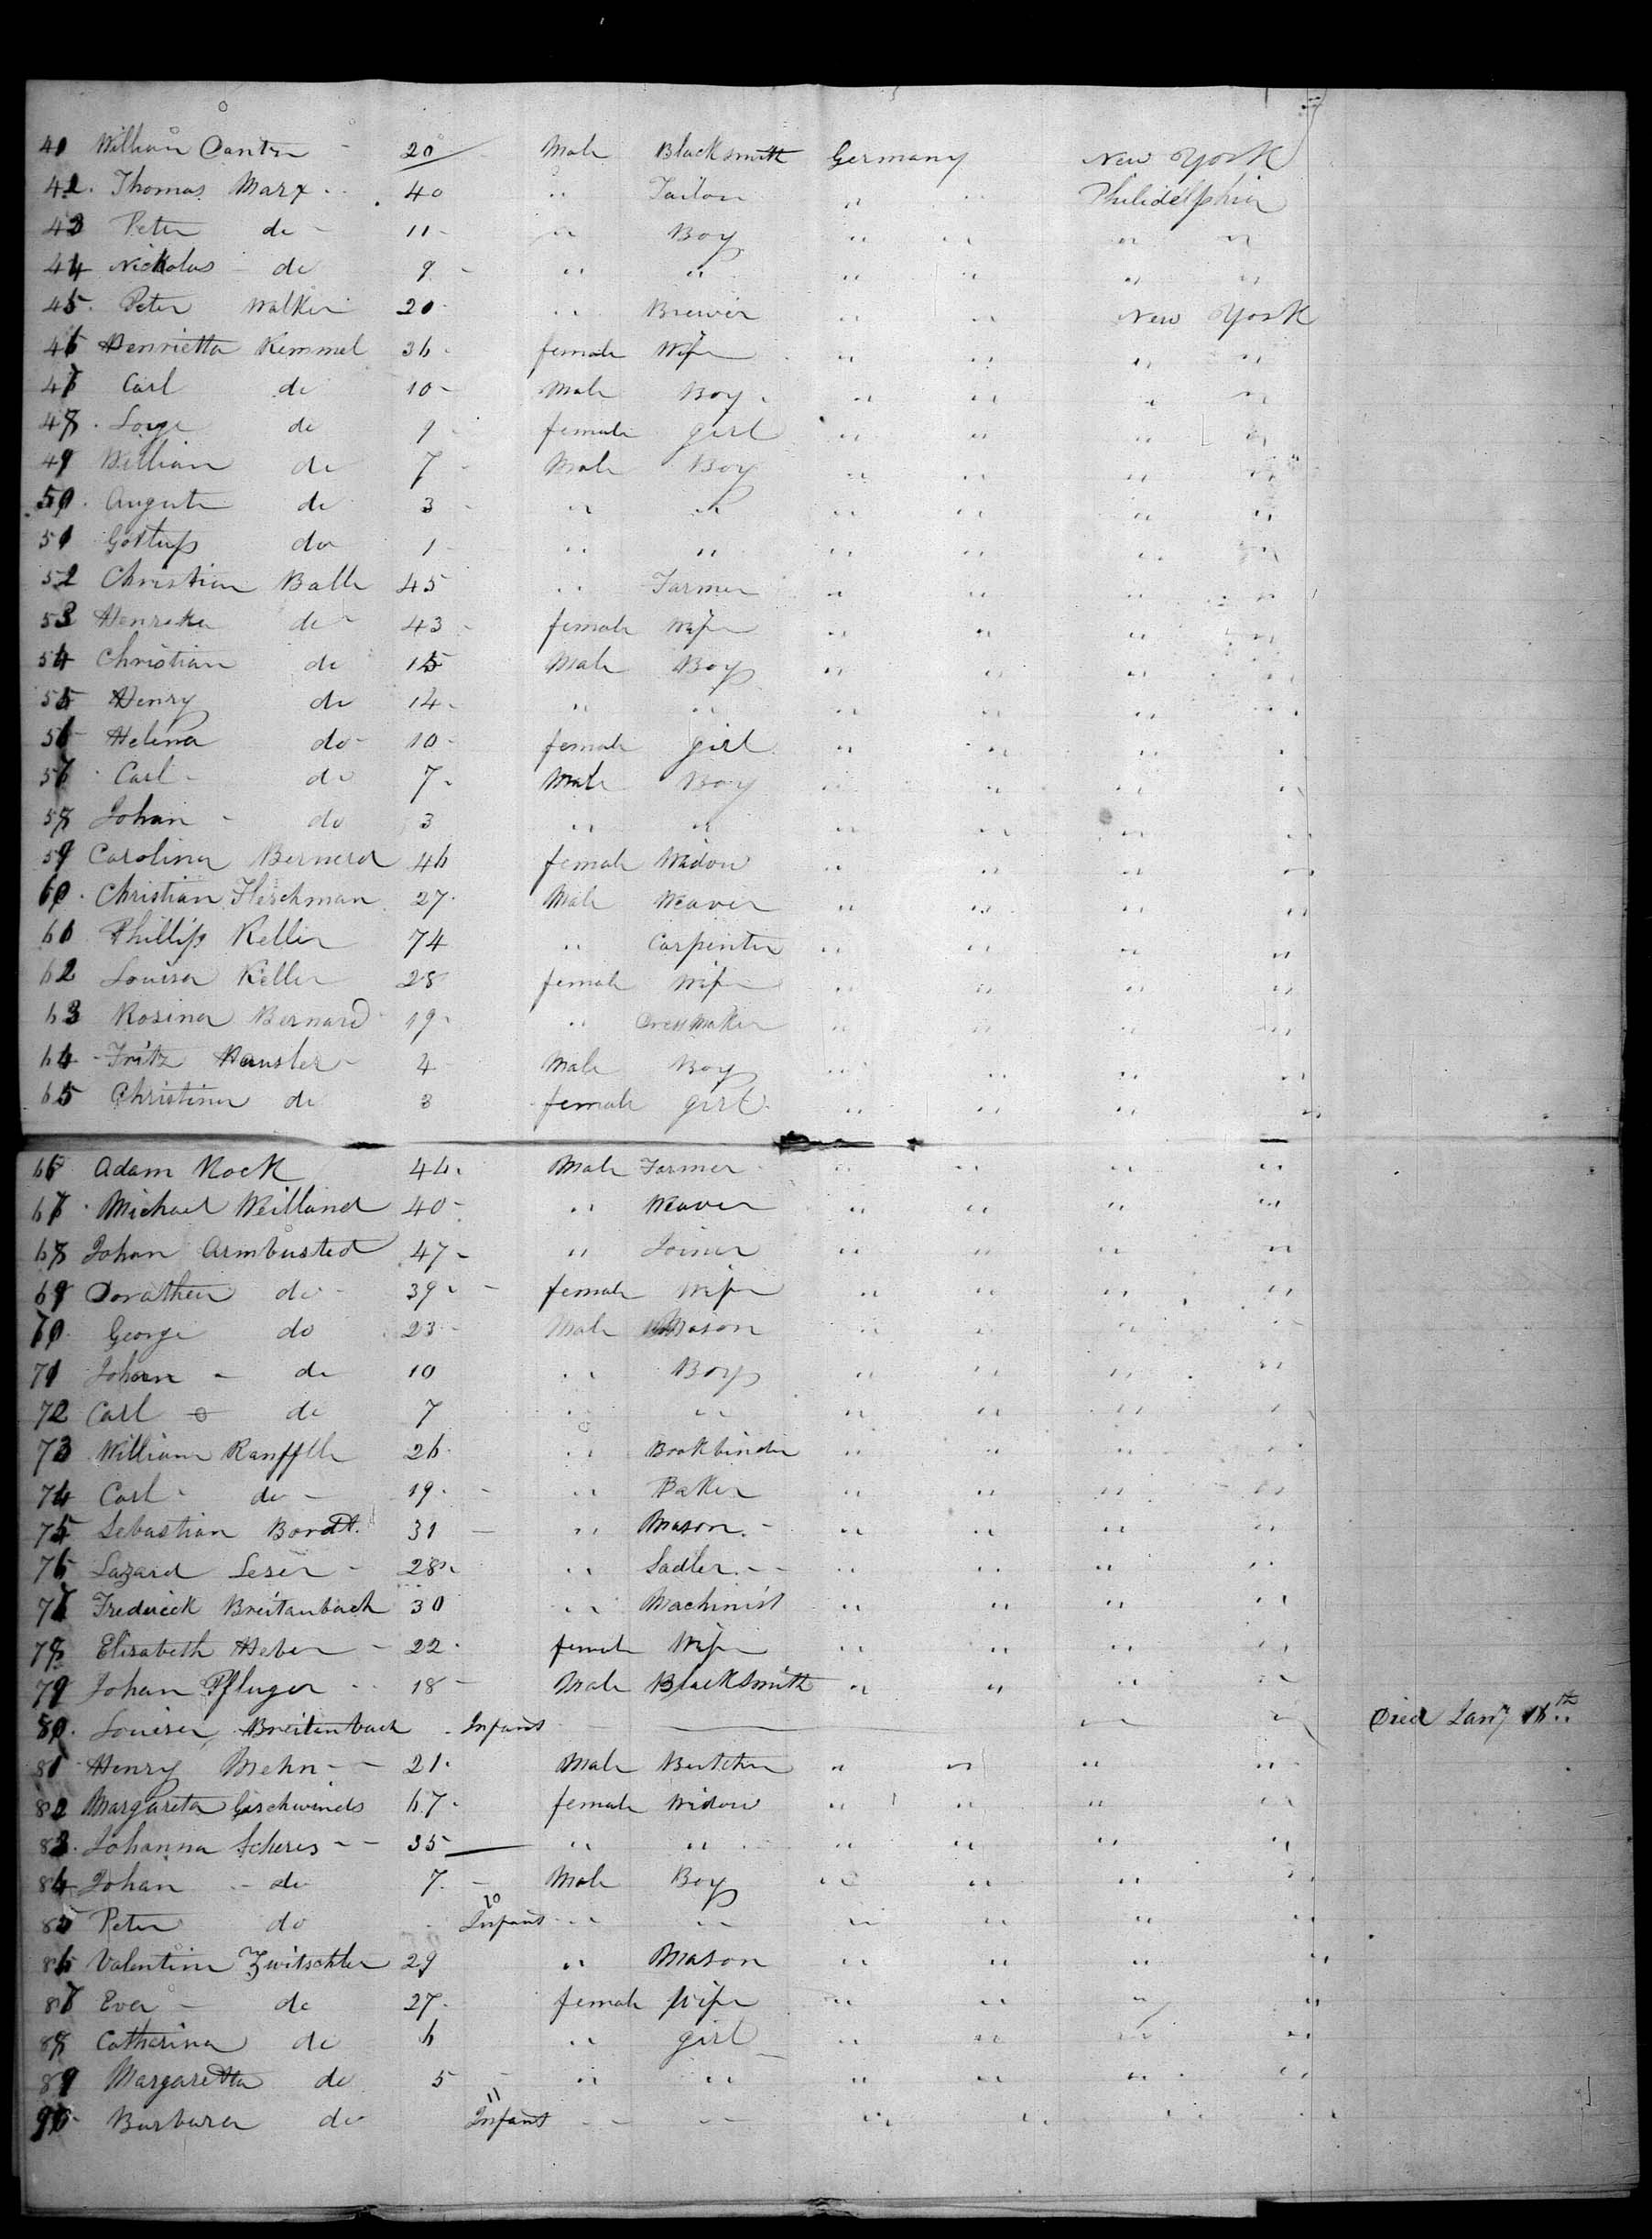 41 William Canten - 20 Male Blacksmith Germany New York
42. Thomas Marx .. 40 " Tailor " " Philidelphia
43 Peter do - 11 - " Boy " " " "
44 Nickolas - do 9 - " " " " " "
45. Peter Walker 20 " Brewer " " New York
46 Henrietta Kemmel 36 - female Wife " " " "
47 Carl do 10 - Male Boy " " " "
48. do 9 - female girl " " " "
49 William do 7 - Male Boy " " " "
50. August do 3 - " " " " " "
51 do 1 - " " " " " "
52 Christian Balle 45 " Farmer " " " "
53 Henreka do - 43 - female Wife " " " "
54 Christian do 15 Male Boy " " " "
55 Henry do 14 - " " " " " "
56 Helena do - 10 - female girl " " " "
57 Carl - do 7 - Male Boy " " " "
58 Johan - do 3 " " " " " "
59 Carolina Bernerd 46 female Widow " " " "
60. Christian Fleschman 27. Male Weaver " " " "
61 Phillip Keller 74 " Carpenter " " " "
62 Louisa Keller 28 female Wife " " " "
63 Rosina Bernard 19 - " Dressmaker " " " "
64 - Fritz Hausler - 4 - Male Boy " " " "
65 Christina do 3 female girl " " " "
66 Adam Rock 46. Male Farmer " " " "
67. Michael Weilland 40 - " Weaver " " " "
68 Johan Armbusted 47 - " Joiner " " " "
69 Dorathea do - 39 - - female Wife " " " "
70. George do 23 - Male Mason " " " "
71 Johan - do 10 " Boy " " " "
72 Carl - do 7 " " " " " "
73 William 26. " Bookbinder " " " "
74 Carl - do - 19. - " Baker " " " "
75 Sebastian Bordt. 31 - " Mason. - " " " "
76 Lazard Leser - 28 - " Sadler. - - " " " "
77 Frederick Breitanbach 30 " Machinist " " " "
78 Elisabeth Heber - 22. female Wife " " " "
79 Johan Pfluger - 18 - Male Blacksmith " " " "
80. Louisa Breitenbach . Infant " " Died Jany 16th
81 Henry Mehn - - 21. Male Butcher " " " "
82 Margareta Geschwinds 67. female Widow " " " "
83. Johanna Scheres - - 35 - " " " " " "
84 Johan - do 7. - Male Boy " " " "
85 Peter do . 10 Infant " " " " " "
86 Valentin Zwitschler 29 " Mason " " " "
87 Eva - do 27. female Wife " " " "
88 Catherina do 6 " girl " " " "
89 Margaretta do 5 - " " " " " "
90 Barbara do 11 Infant - - - - " " " "